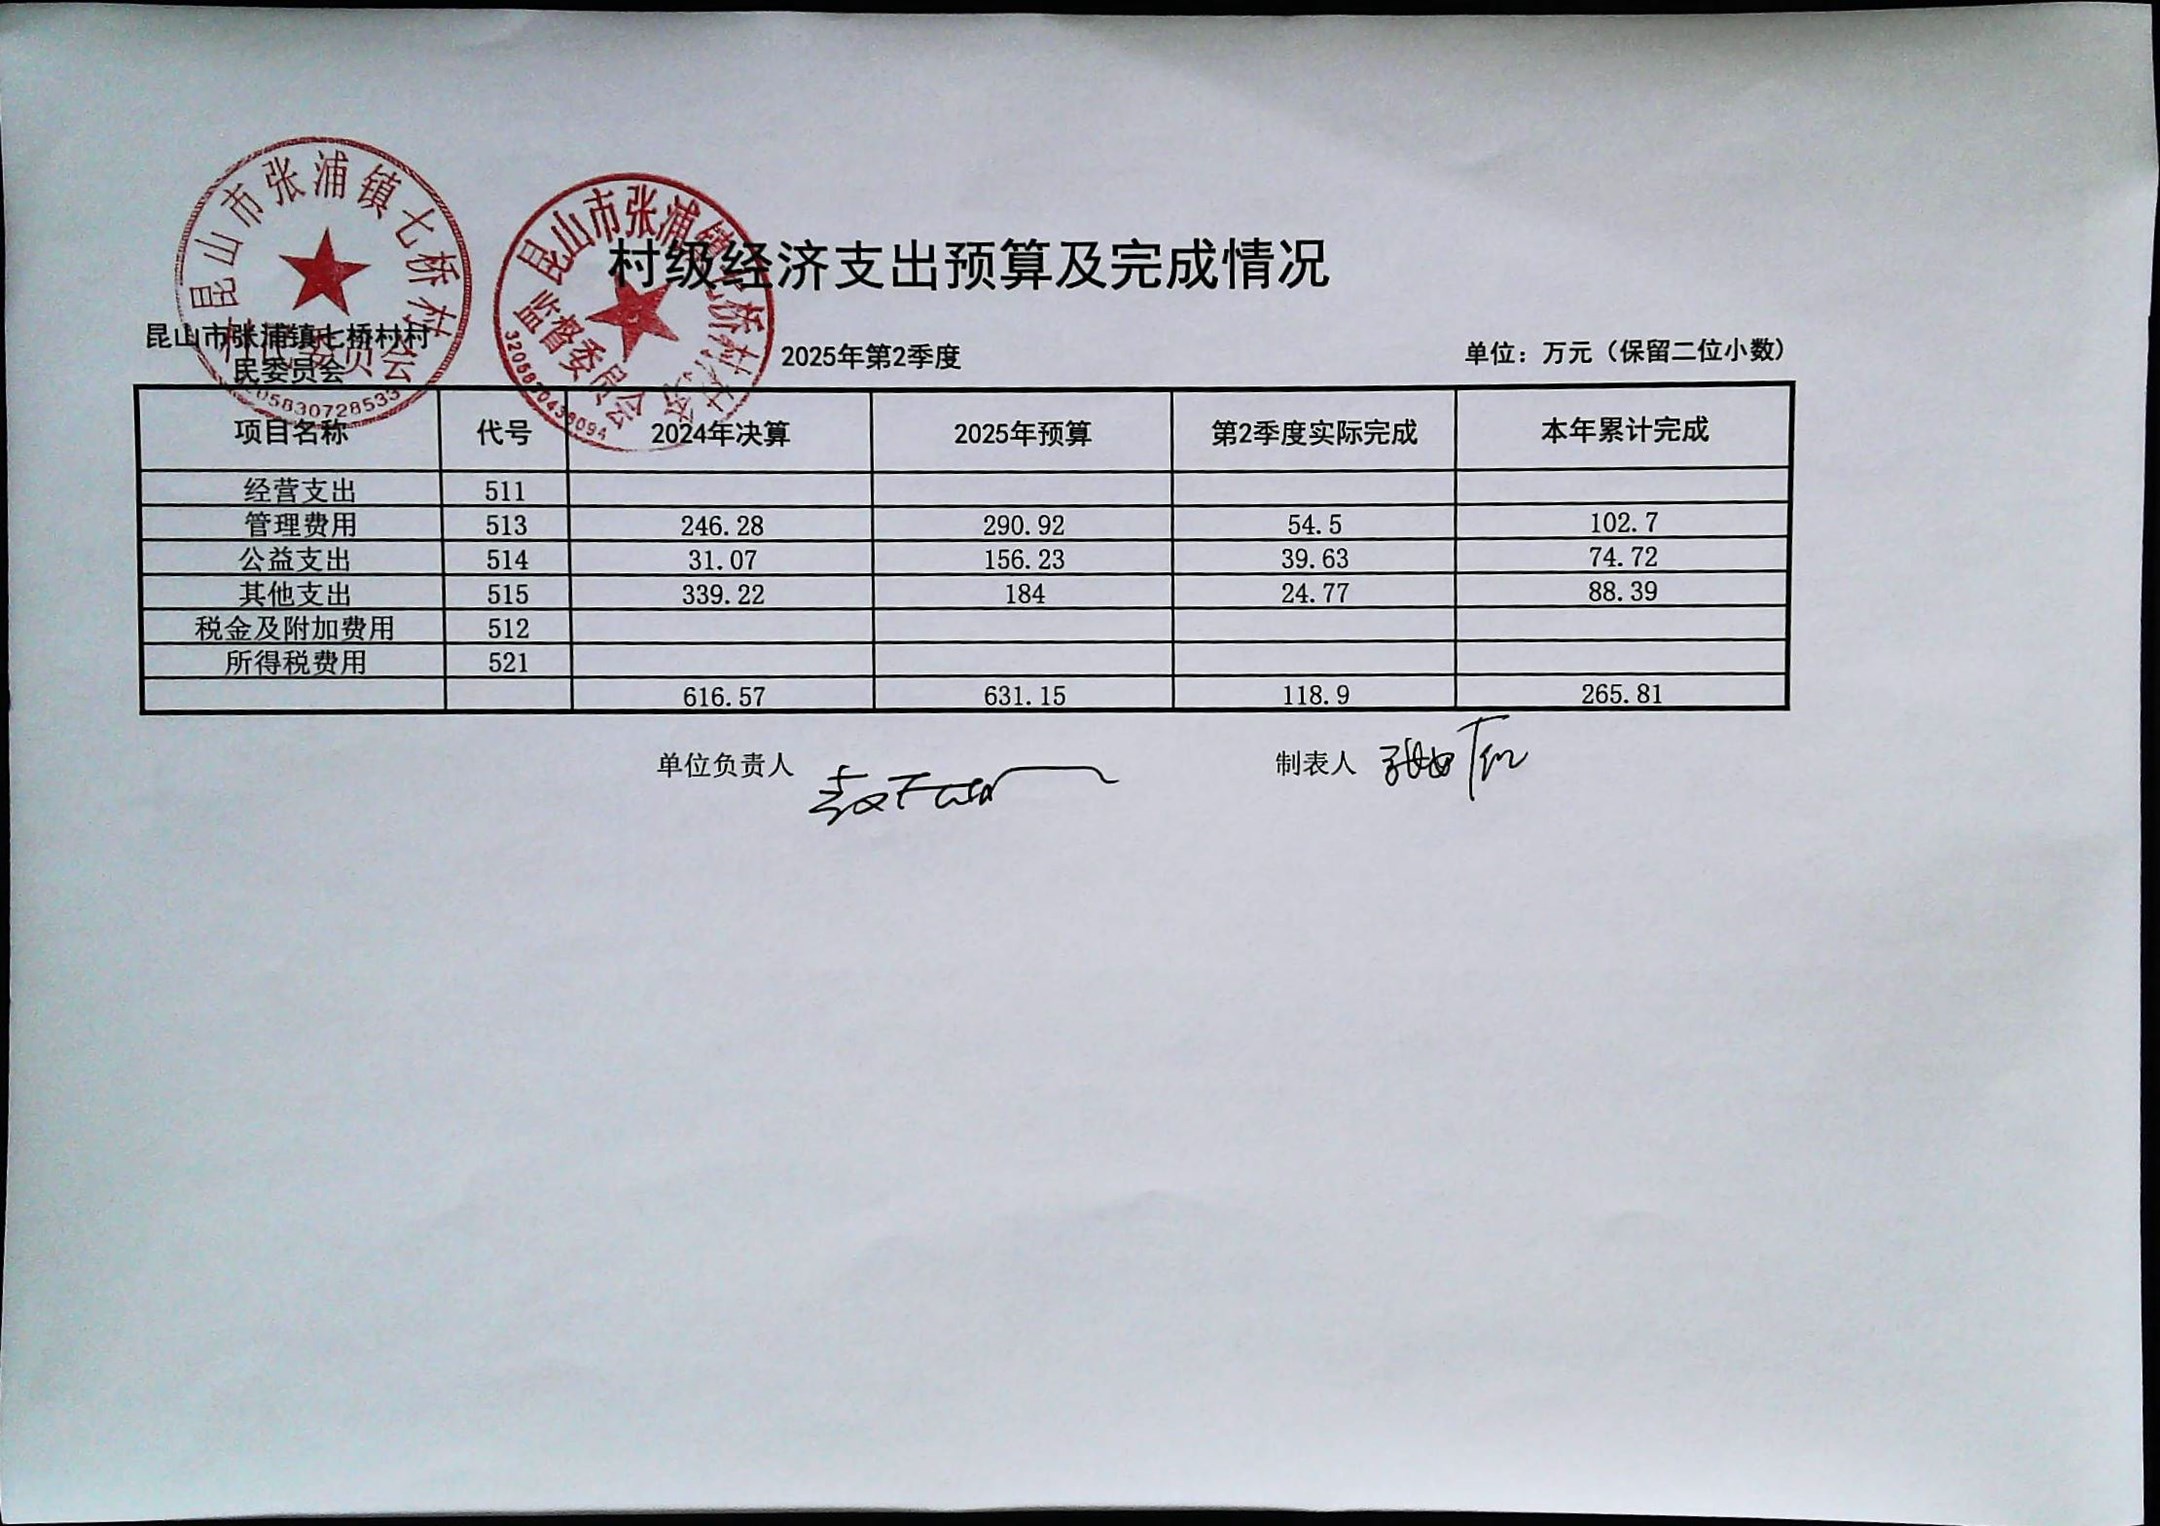 昆山市张浦镇七桥村
村民委员会
05830728533
昆山市张浦镇七桥村
监督委员会
村级经济支出预算及完成情况
昆山市张浦镇七桥村村
民委员会
2025年第2季度
单位：万元（保留二位小数）
项目名称 代号 2024年决算 2025年预算 第2季度实际完成 本年累计完成
经营支出 511
管理费用 513 246.28 290.92 54.5 102.7
公益支出 514 31.07 156.23 39.63 74.72
其他支出 515 339.22 184 24.77 88.39
税金及附加费用 512
所得税费用 521
616.57 631.15 118.9 265.81
单位负责人 制表人